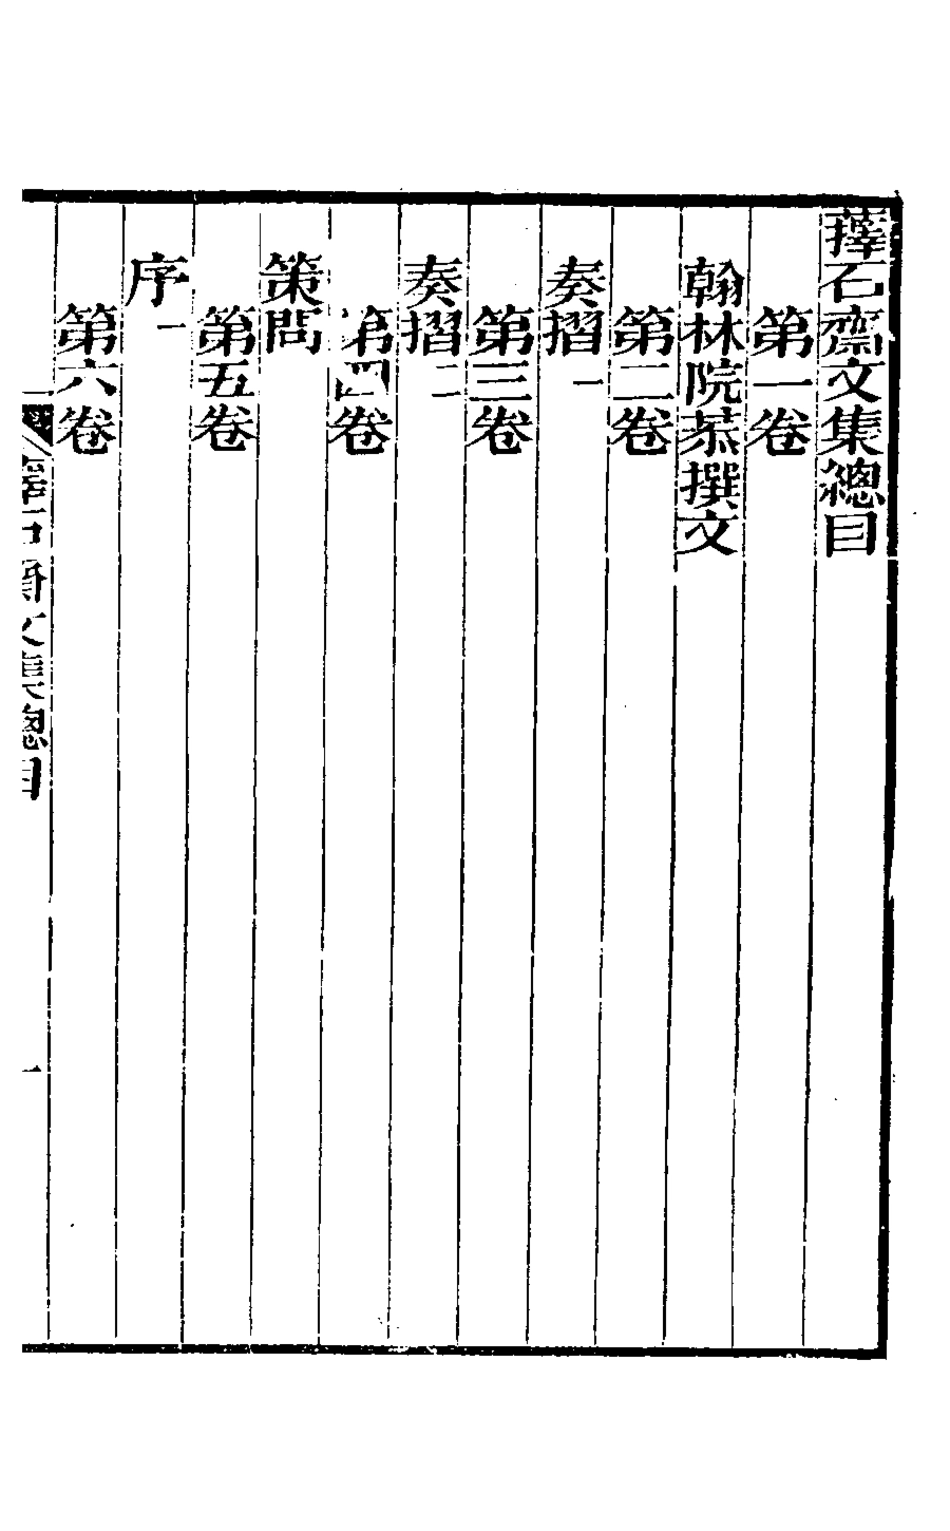 蘀石齋文集總目
第一卷
翰林院恭撰文
第二卷
奏摺一
第三卷
奏摺二
第四卷
策問
第五卷
序一
第六卷
蘀石齋文集總目
一